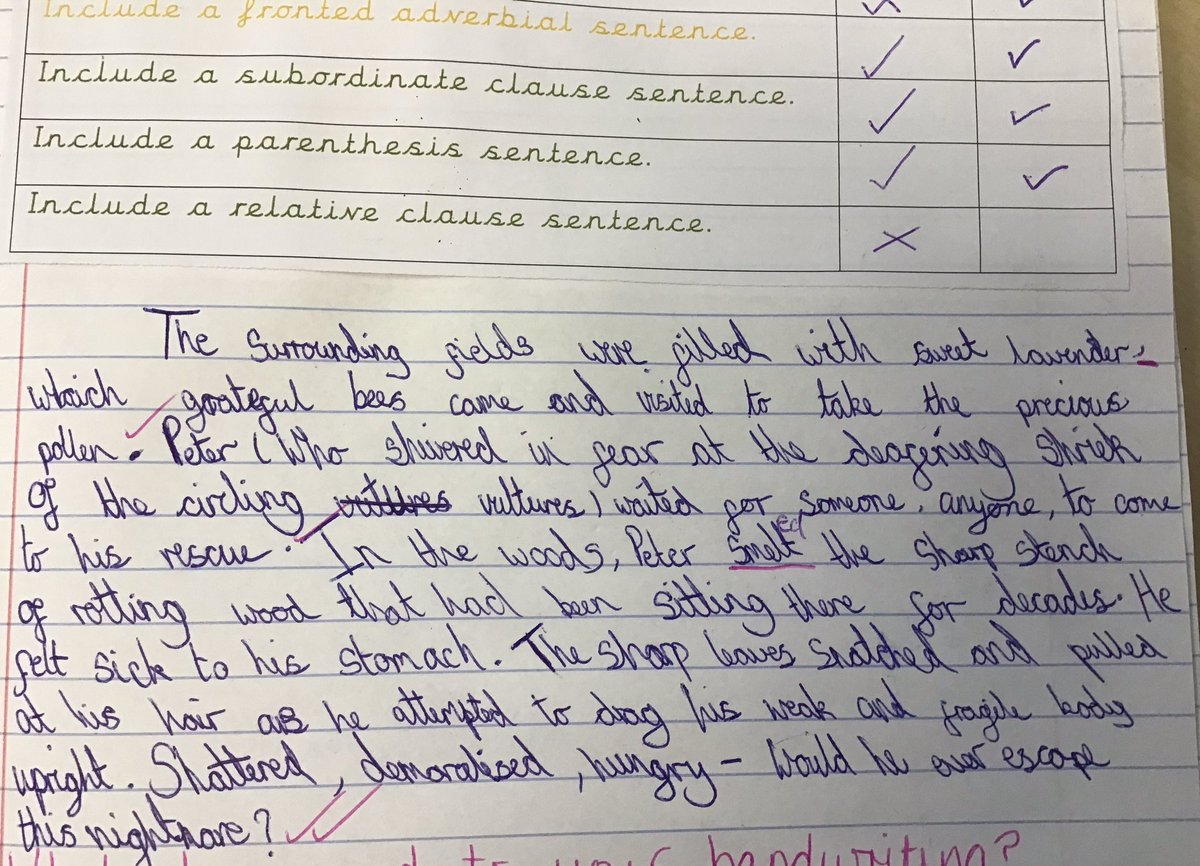 Include a fronted adverbial sentence.
Include a subordinate clause sentence.
Include a parenthesis sentence.
Include a relative clause sentence.
The surrounding fields were filled with sweet lavender,
which grateful bees came and visited to take the precious
pollen. Peter (Who shivered in fear at the deafening shriek
of the circling vultures vultures) waited for someone, anyone, to come
to his rescue. In the woods, Peter smelt ed the sharp stench
of rotting wood that had been sitting there for decades. He
felt sick to his stomach. The sharp leaves snatched and pulled
at his hair as he attempted to drag his weak and fragile body
upright. Shattered, demoralised, hungry - would he ever escape
this nightmare?
to your handwriting?